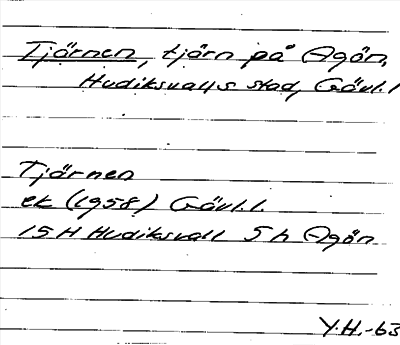 Tjärnen, tjärn på Agön,
Hudiksvalls stad, Gävl.l
Tjärnen
ek (1958) Gävl.l.
15H Hudiksvall 5h Agön
Y.H.-63